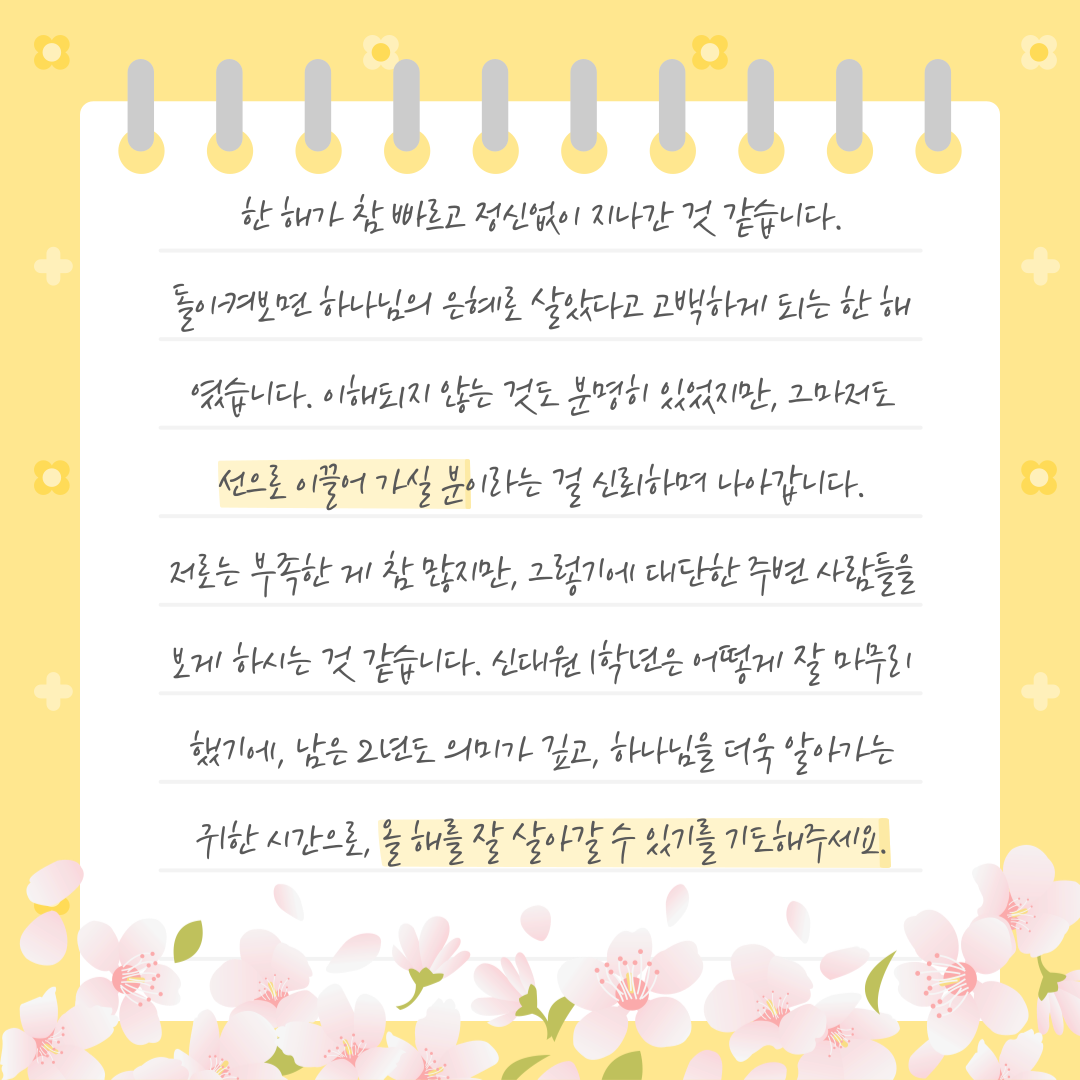 한 해가 참 빠르고 정신없이 지나간 것 같습니다.
돌이켜보면 하나님의 은혜로 살았다고 고백하게 되는 한 해
였습니다. 이해되지 않는 것도 분명히 있었지만, 그마저도
선으로 이끌어 가실 분이라는 걸 신뢰하며 나아갑니다.
저로는 부족한 게 참 많지만, 그렇기에 대단한 주변 사람들을
보게 하시는 것 같습니다. 신대원 1학년은 어떻게 잘 마무리
했기에, 남은 2년도 의미가 깊고, 하나님을 더욱 알아가는
귀한 시간으로, 올 해를 잘 살아갈 수 있기를 기도해주세요.